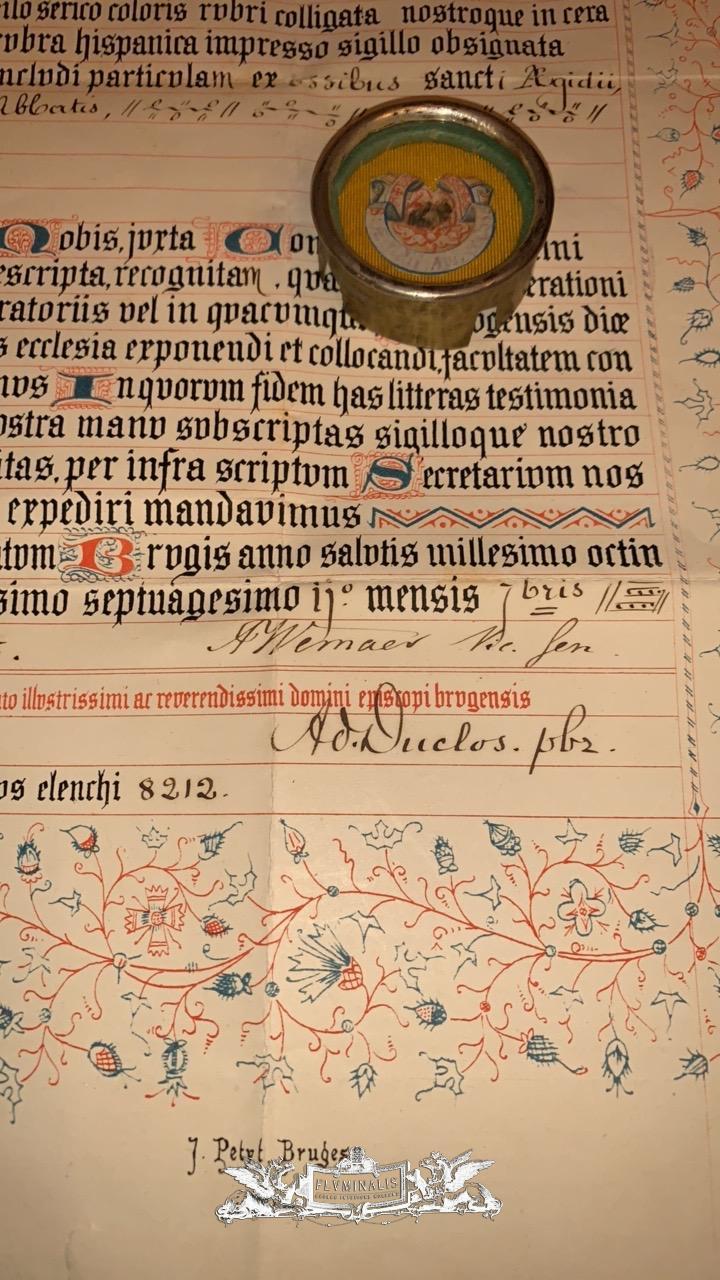 ilo serico coloris rvbri colligata nostroque in cera
rvbra hispanica impresso sigillo obsignata
nclvdi particvlam ex ossibus sancti Ægidii,
Abbatis,
Nobis, jvxta Con ini
escripta, recognitam, qua erationi
ratoriis vel in qvacvmqu ogensis diœ
s ecclesia exponendi et collocandi, facvltatem con
mvs Inqvorvm fidem has litteras testimonia
ostra manv svbscriptas sigilloque nostro
itas, per infra scriptvm Secretarivm nos
expediri mandavimus
atvm Brvgis anno salvtis millesimo octin
simo septuagesimo ij° mensis 7bris
A Wemaer Vic. Gen.
to illvstrissimi ac reverendissimi domini episcopi brvgensis
Ad. Duclos. pbr.
vs elenchi 8212.
J. Petyt Bruges
FLVMINALIS